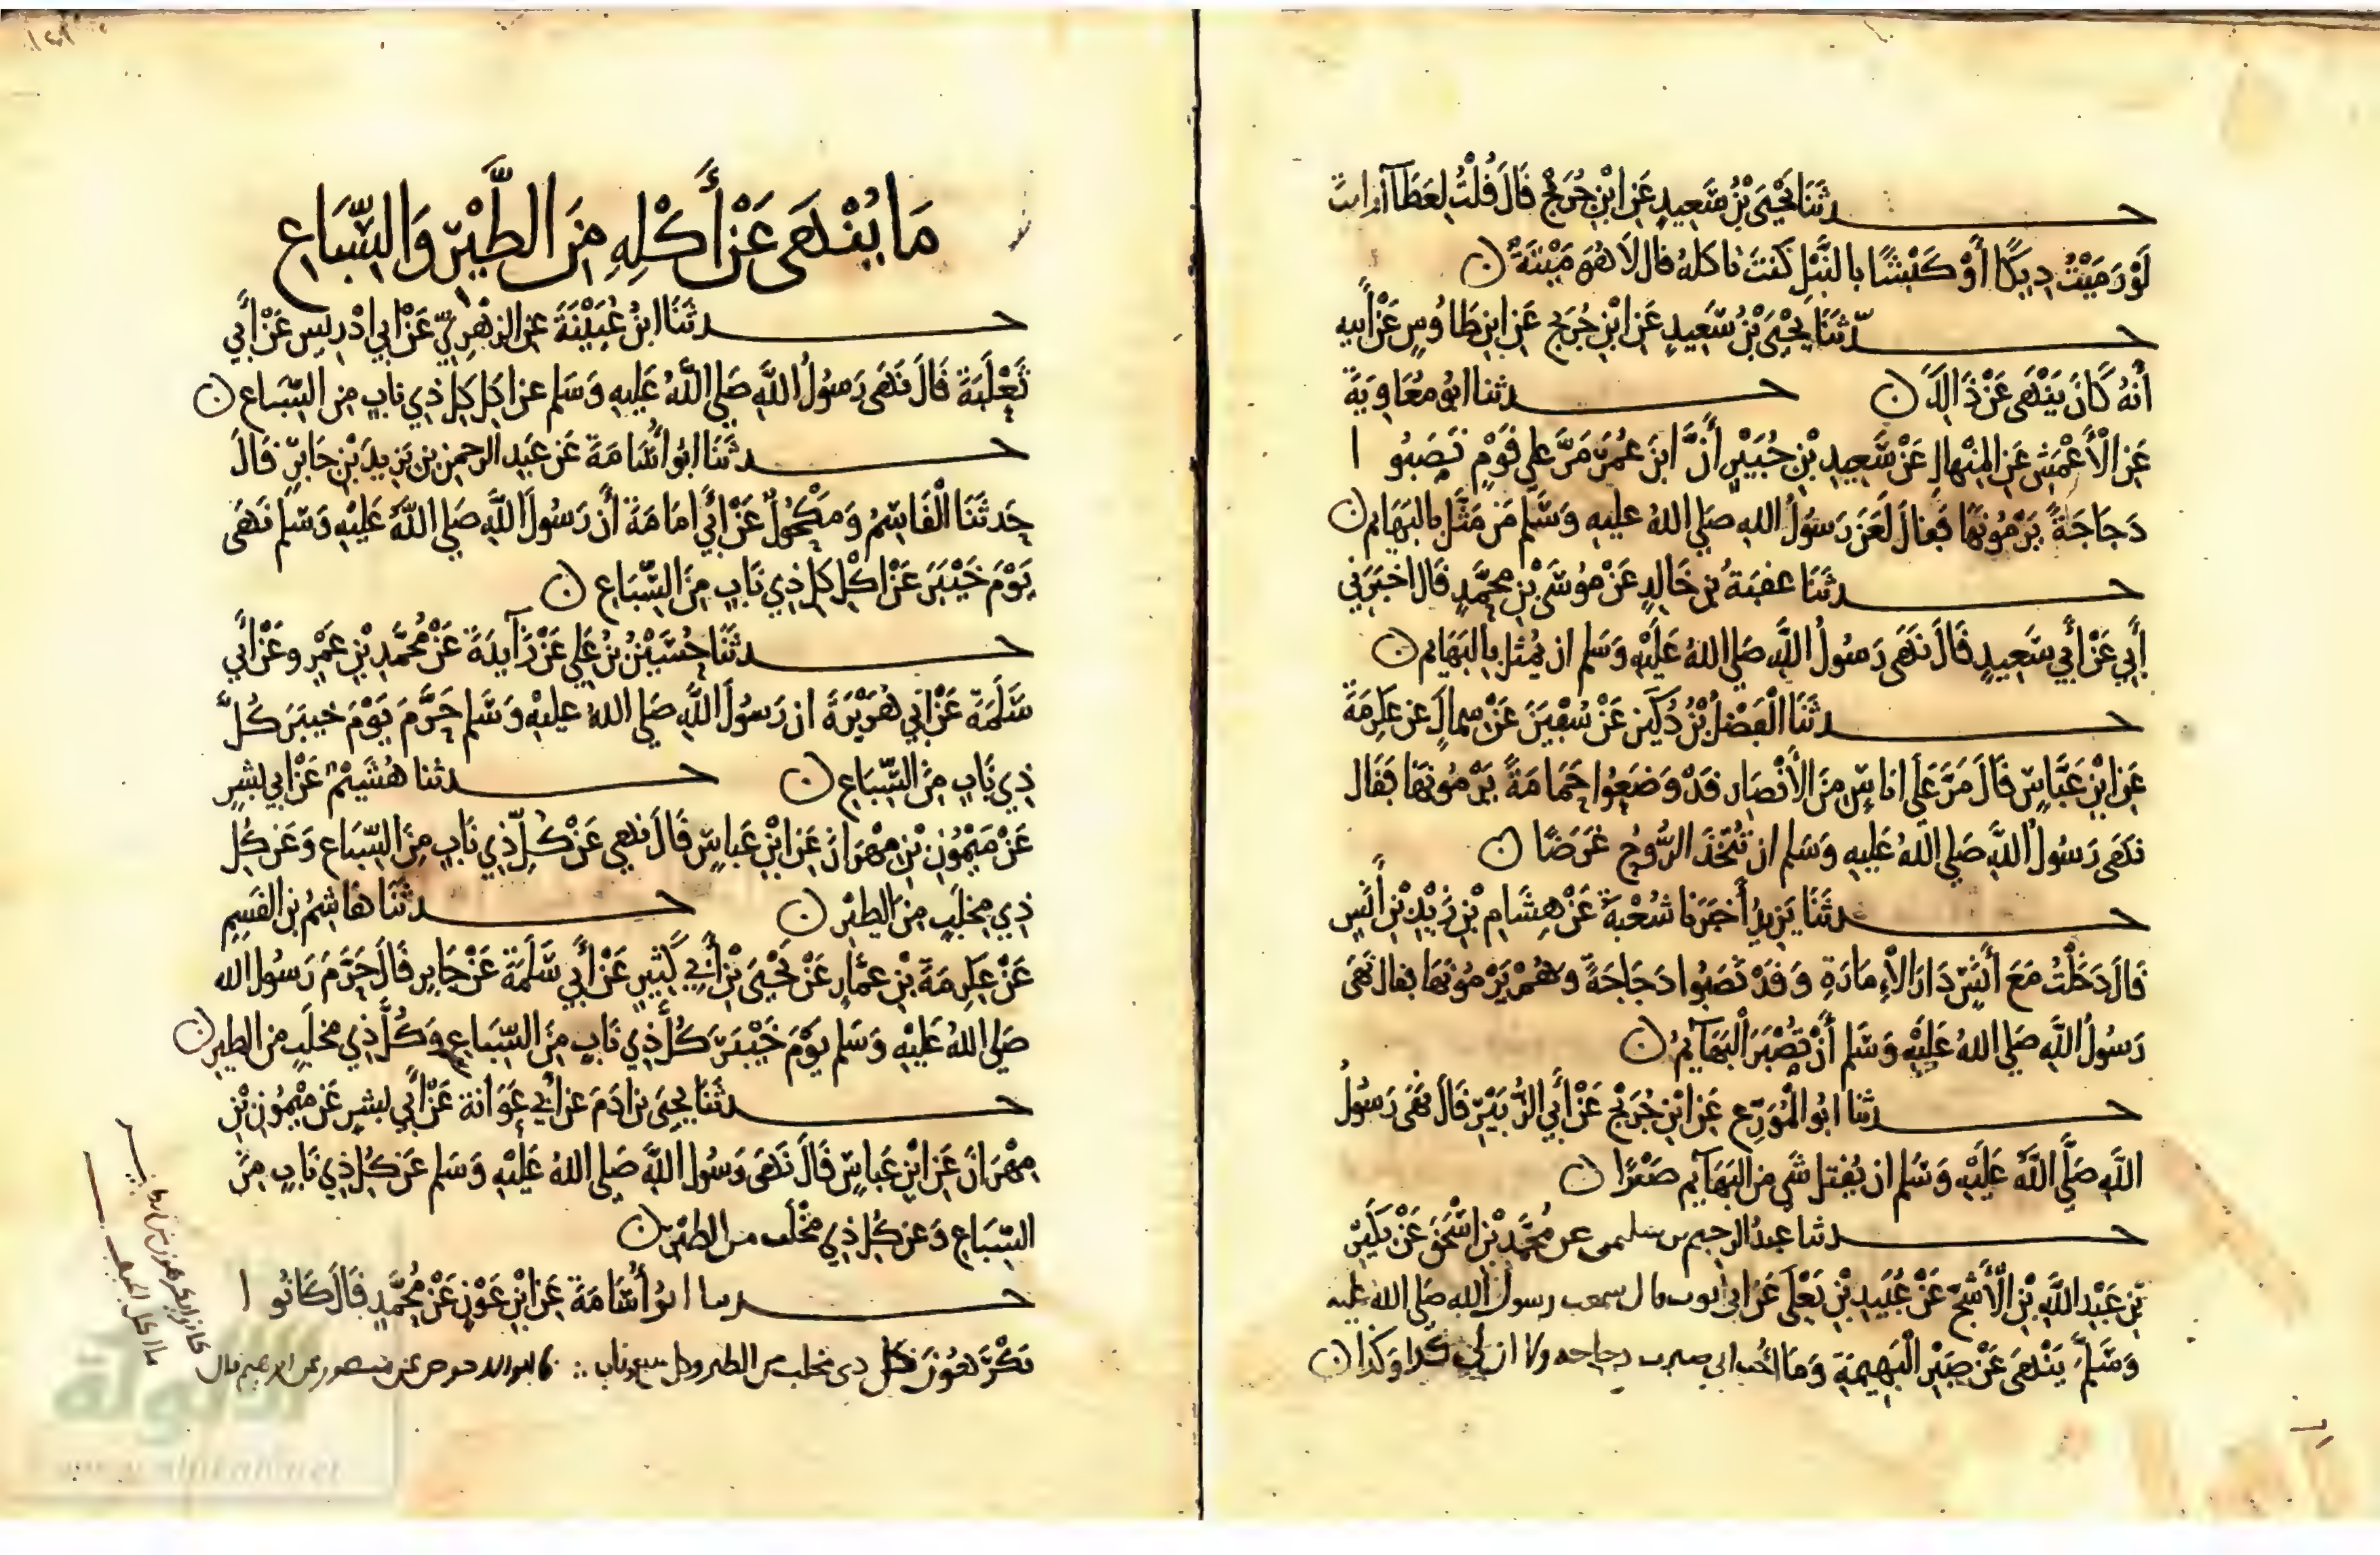 حدثنا يَحْيَى بْنُ سَعِيدٍ عَنِ ابْنِ جُرَيْجٍ قَالَ قُلْتُ لِعَطَآ أرايت
لَوْ رَمَيْتُ دِيكًا أَوْ كَبْشًا بالنَّبْلِ كُنتَ تاكله قال لَا هُوَ مَيْتَةٌ ن
حدّثَنَا يَحْيَى بْنُ سَعِيدٍ عَنِ ابْنِ جُرَيْجٍ عَنِ ابنِ طَاوُسٍ عَنْ أَبيه
أَنَّهُ كَانَ يَنْهَى عَنْ ذَالِكَ ن حدثنا ابُو مُعَاوِيَةَ
عَنِ الْأَعْمَشِ عَنِ المِنْهالِ عَنْ سَعِيدِ بْنِ جُبَيْرٍ أَنَّ ابنَ عُمَرَ مَرَّ علي قَوْمٍ نَصَبُوا
دَجَاجَةً يَرْمُونَهَا فَقالَ لَعَنَ رَسُولُ اللهِ صَلي اللهُ عليهِ وَسَّلم مَنْ مَثَّلَ بِالبَهَايم ن
حدثَنَا عقبَةُ بن خَالِدٍ عَنْ مُوسَى بْنِ محمَّدٍ قال اخبَرَنِي
أَبِي عَنْ أَبِي سَعِيدٍ قَالَ نَهَى رَسُولُ اللَّهِ صَلي اللهُ عَلَيْهِ وَسَلم ان يُمثل بالبَهَايم ن
حدثَنَا الْفَضْلُ بْنُ دُكَيْنٍ عَنْ سُفْيَنَ عَنْ سِماكٍ عن عِكرِمَةَ
عَنِ ابْنِ عَبَّاسٍ قَالَ مَرَّ عَلَى اناسٍ مِنَ الأَنْصَارِ قَدْ وَضَعُوا حَمَامَةً يَرْمُونَهَا فقَال
نَهَى رَسُولُ اللَّهِ صَلي اللهُ عَليهِ وَسَلم ان تُتَّخَذَ الرُّوحُ غَرَضًا ن
حدثَنَا يَزِيدُ أَخبَرَنا شُعْبَةُ عَنْ هِشَامِ بْنِ زَيْدِ بْنِ أَنَسٍ
قَالَ دَخَلْتُ مَعَ أَنَسٍ دَارَ الْإِمَارَةِ وَقَدْ نَصَبُوا دَجَاجَةً وهُمْ يَرْمُونَهَا فقال نَهَى
رَسُولُ اللَّهِ صَلي اللهُ عَلَيْهِ وَسَلم أَنْ تُصْبَرَ الْبَهَآيِمُ ن
حدثنا ابُو الْمُوَرِّعِ عَنِ ابْنِ جُرَيْجٍ عَنْ أَبِي الزُّبَيْرِ قَالَ نَهَى رَسُولُ
اللَّهِ صَلَّي اللَّهُ عَلَيْهِ وَسَلم ان يُقتل شَي من البَهَآيم صَبْرًا ن
حدثنا عَبدُ الرحِيم بن سليمن عن مُحَمَّدِ بْنِ اسْحَقَ عَنْ بُكَيْرِ
بْنِ عَبْدِ اللَّهِ بْنِ الْأَشَجِّ عَنْ عُبَيْدِ بْنِ يَعْلَى عَنْ ابي ايوب قال سمعت رسول الله صَلي الله عليه
وَسَلَّمَ يَنْهَى عَنْ صَبْرِ الْبَهِيمَةِ وَمَا احُب اني صبرت دجاجه ولا ان لي كذا وكذا ن
مَا يُنْهَى عَنْ أَكْلِهِ مِنَ الطَّيْرِ وَالسِّبَاعِ
حدثَنَا ابنُ عُيَيْنَةَ عن الزهْرِيِّ عَنْ أبِي ادْرِيسَ عَنْ أَبِي
ثَعْلَبَةَ قَالَ نَهَى رَسُولُ اللَّهِ صَلي اللَّهُ عَليهِ وَسَلم عن اكلِ كلِّ ذِي نابٍ من السِّبَاعِ ن
حدثَنَا ابُو أُسَامَةَ عَنْ عَبدِ الرحمنِ بن يَزِيدَ بْنِ جَابِرٍ قَالَ
حَدثَنَا الْقَاسِمُ وَمَكْحُولٌ عَنْ أَبِي أمَامَةَ أَنَّ رَسُولَ اللَّهِ صَلي اللَّهُ عَلَيْهِ وَسَلم نَهَى
يَوْمَ خَيْبَرَ عَنْ اكْلِ كلِ ذِي نَابٍ مِنَ السِّبَاعِ ن
حدثَنَا حُسَيْنُ بْنُ عَلي عَنْ زَآيِدَةَ عَنْ مُحمَّدِ بْنِ عَمْرٍو عَنْ أَبِي
سَلَمَةَ عَنْ ابِي هُرَيْرَةَ ان رَسُولَ اللَّهِ صَلي اللهُ عليهِ وَسَلم حَرَّمَ يَوْمَ خيبَرَ كُلَّ
ذِي نَابٍ مِنَ السِّبَاعِ ن حدثنا هُشَيْمٌ عَنْ ابي بِشرٍ
عَنْ مَيْمُونِ بْنِ مِهْرَانَ عَنِ ابْنِ عَباسٍ قَالَ نُهِي عَنْ كُلِّ ذِي نَابٍ مِنَ السِّبَاعِ وَعَن كُلِّ
ذِي مِخلَبٍ مِنَ الطيْرِ ن حدثَنَا هَاشِمُ بن القَسِمِ
عَنْ عِكرِمَةَ بْنِ عمَّارٍ عَنْ يَحْيَى بْنِ أَبِي كَثِيرٍ عَنْ أَبِي سَلَمَةَ عَنْ جَابِرٍ قَالَ حَرَّمَ رَسُولُ الله
صَلي اللهُ عَلَيْهِ وَسَلم يوْمَ خَيْبَرَ كُلَّ ذِي نَابٍ مِنَ السِّبَاعِ وَكُلَّ ذِي مخلَبٍ من الطير ن
حدثَنَا يحيَى بن ادَمَ عن أَبِي عَوَانَةَ عَنْ أَبِي بشرٍ عَنْ مَيْمُونِ بْنِ
مِهْرَانَ عَنِ ابْنِ عَباسٍ قَالَ نَهَى رَسُولُ اللَّهِ صَلي اللهُ عَلَيْهِ وَسَلم عَنْ كُلِّ ذِي نَابٍ مِنَ
السِّبَاعِ وَعَن كُلِّ ذِي مخْلَب من الطيْرِ ن
حدثنا ابُو أُسَامَةَ عَنِ ابْنِ عَوْنٍ عَنْ مُحَمَّدٍ قَالَ كَانُوا
يَكْرَهُونَ كل ذي مخلب من الطير وكل سبع ذي ناب ابو الاحوص عن منصور عن ابرهيم قال
ما اكل الجيف
www.alukah.net